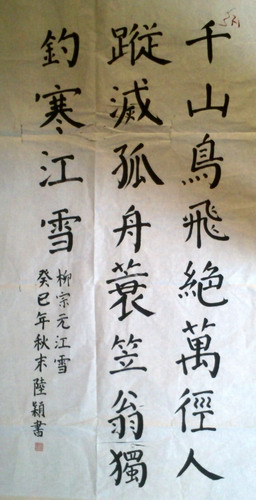 千山鳥飛絶萬徑人
蹤滅孤舟蓑笠翁獨
釣寒江雪
柳宗元江雪
癸巳年秋末陸穎書